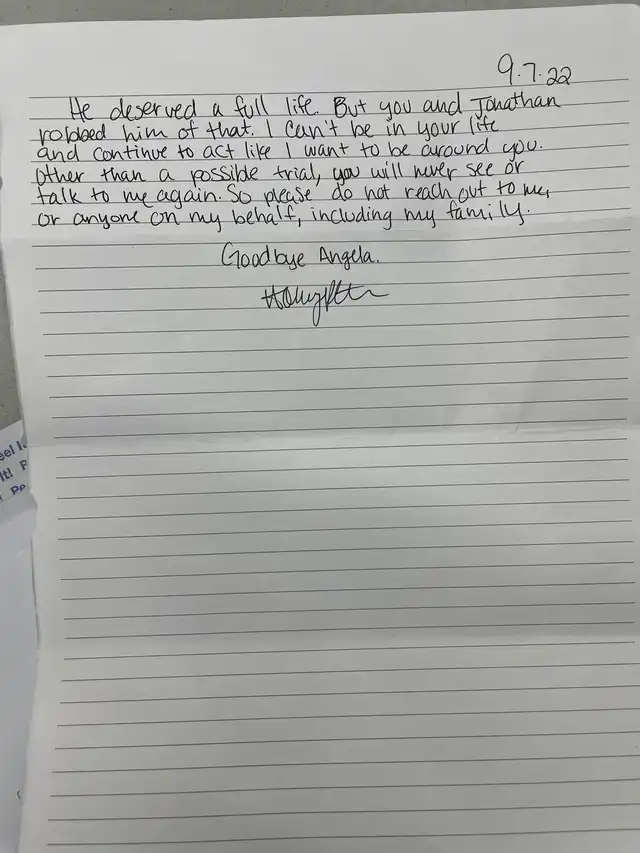 9.7.22
He deserved a full life. But you and Jonathan
robbed him of that. I can't be in your life
and continue to act like I want to be around you.
Other than a possible trial, you will never see or
talk to me again. So please do not reach out to me,
or anyone on my behalf, including my family.
Goodbye Angela.